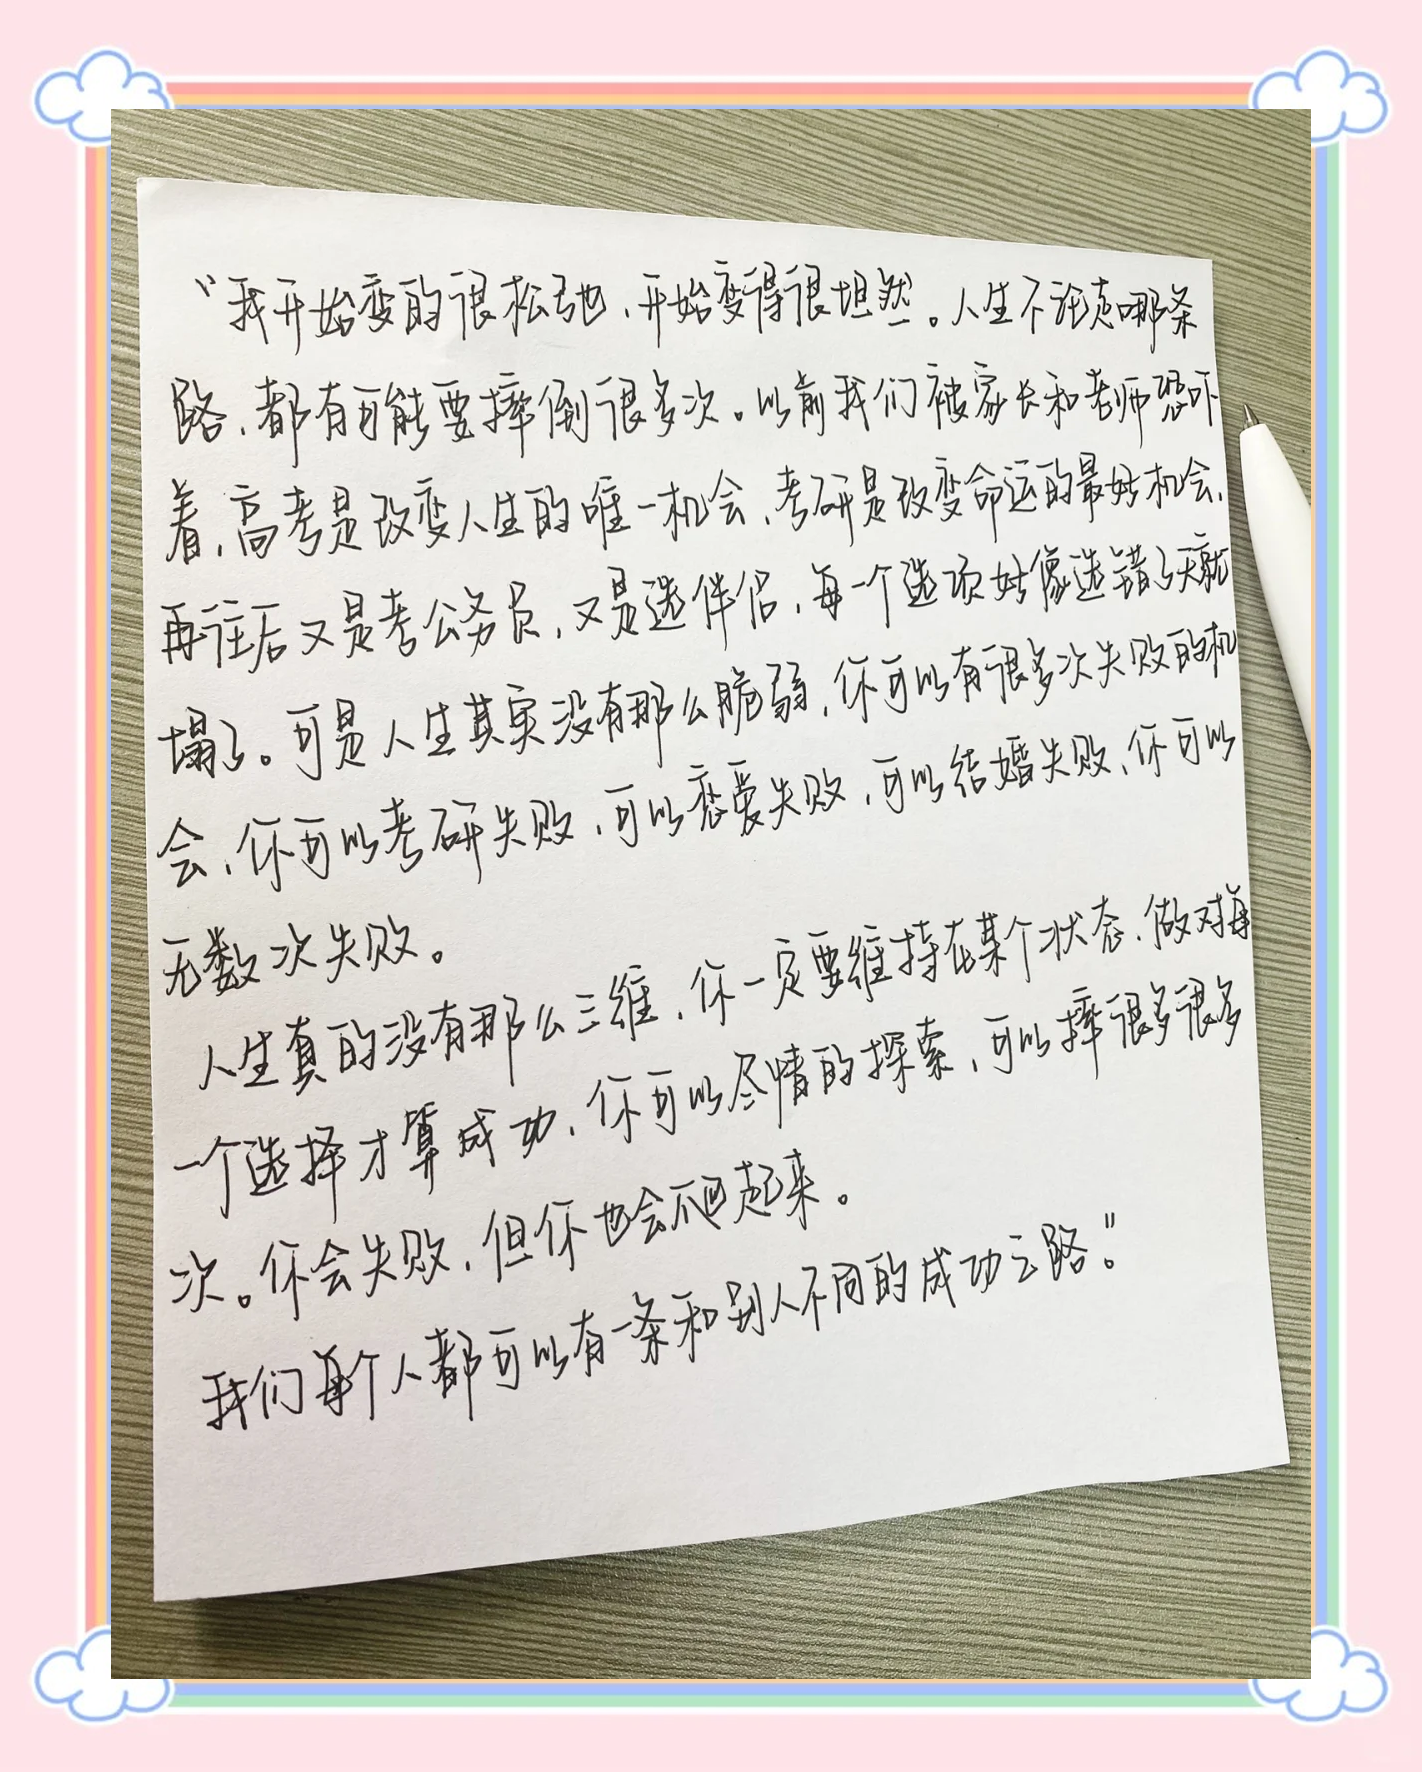 “我开始变的很松弛，开始变得很坦然。人生不论走哪条
路，都有可能要摔倒很多次。以前我们被家长和老师恐吓
着，高考是改变人生的唯一机会，考研是改变命运的最好机会，
再往后又是考公务员，又是选伴侣，每一个选项好像选错了天就
塌了。可是人生其实没有那么脆弱，你可以有很多次失败的机
会，你可以考研失败，可以恋爱失败，可以结婚失败，你可以
无数次失败。
人生真的没有那么三维，你一定要维持在某个状态，做对每
一个选择才算成功，你可以尽情的探索，可以摔很多很多
次。你会失败，但你也会爬起来。
我们每个人都可以有一条和别人不同的成功之路。”